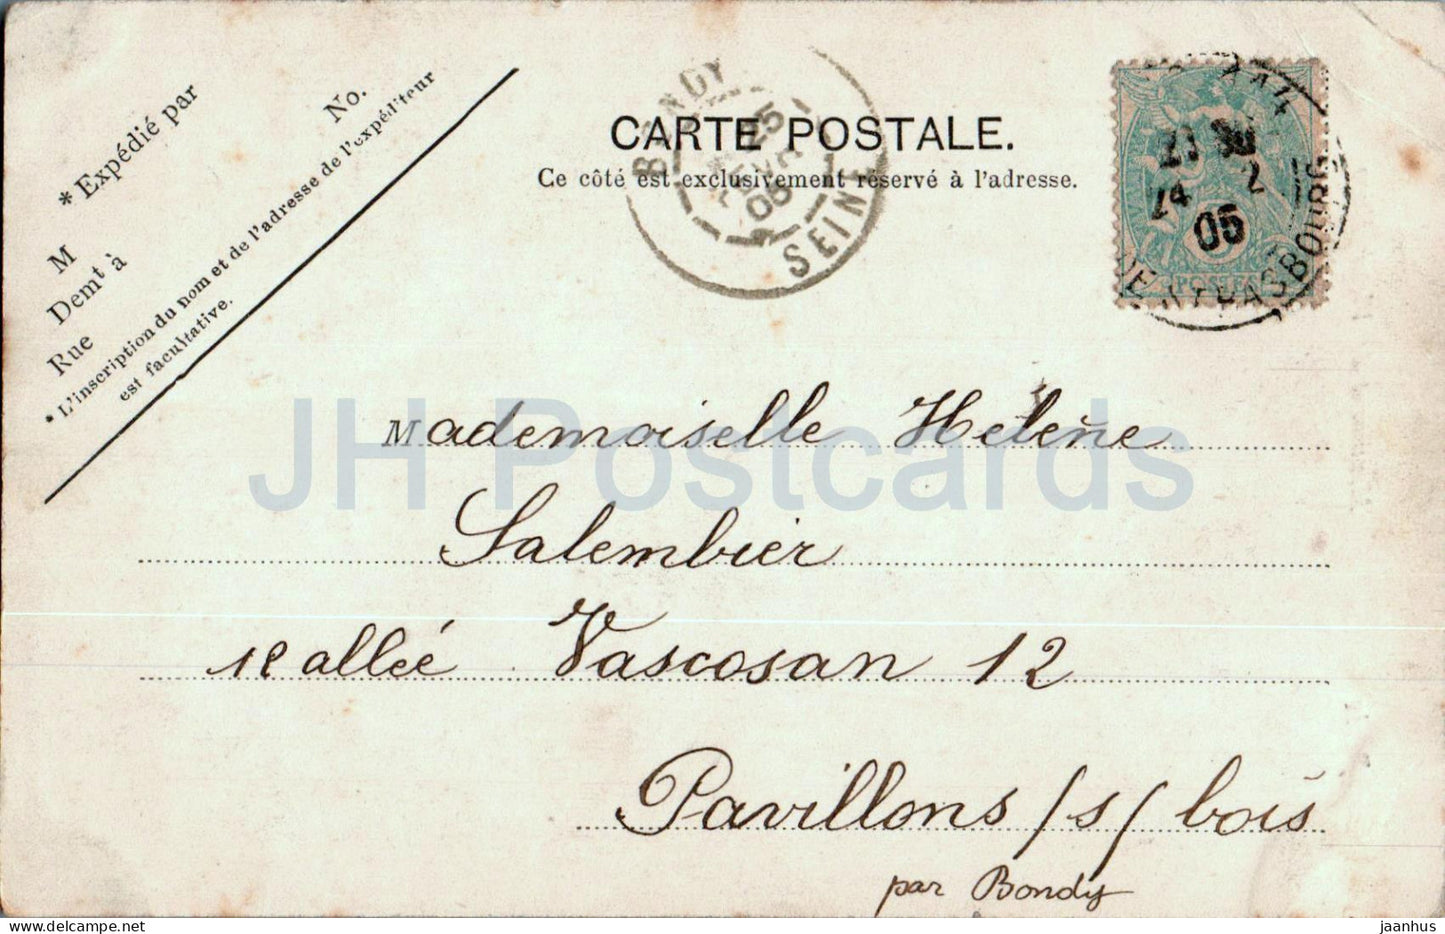 * Expédié par
No.
M
Demt à
Rue
* L'inscription du nom et de l'adresse de l'expéditeur
est facultative.
BONDY
25
05
SEINE
CARTE POSTALE.
Ce côté est exclusivement réservé à l'adresse.
24 2
05
STRASBOURG
POSTES
JH Postcards
Mademoiselle Helène
Salembier
12 allée Vascosan 12
Pavillons /s/ bois
par Bondy
jaanhus